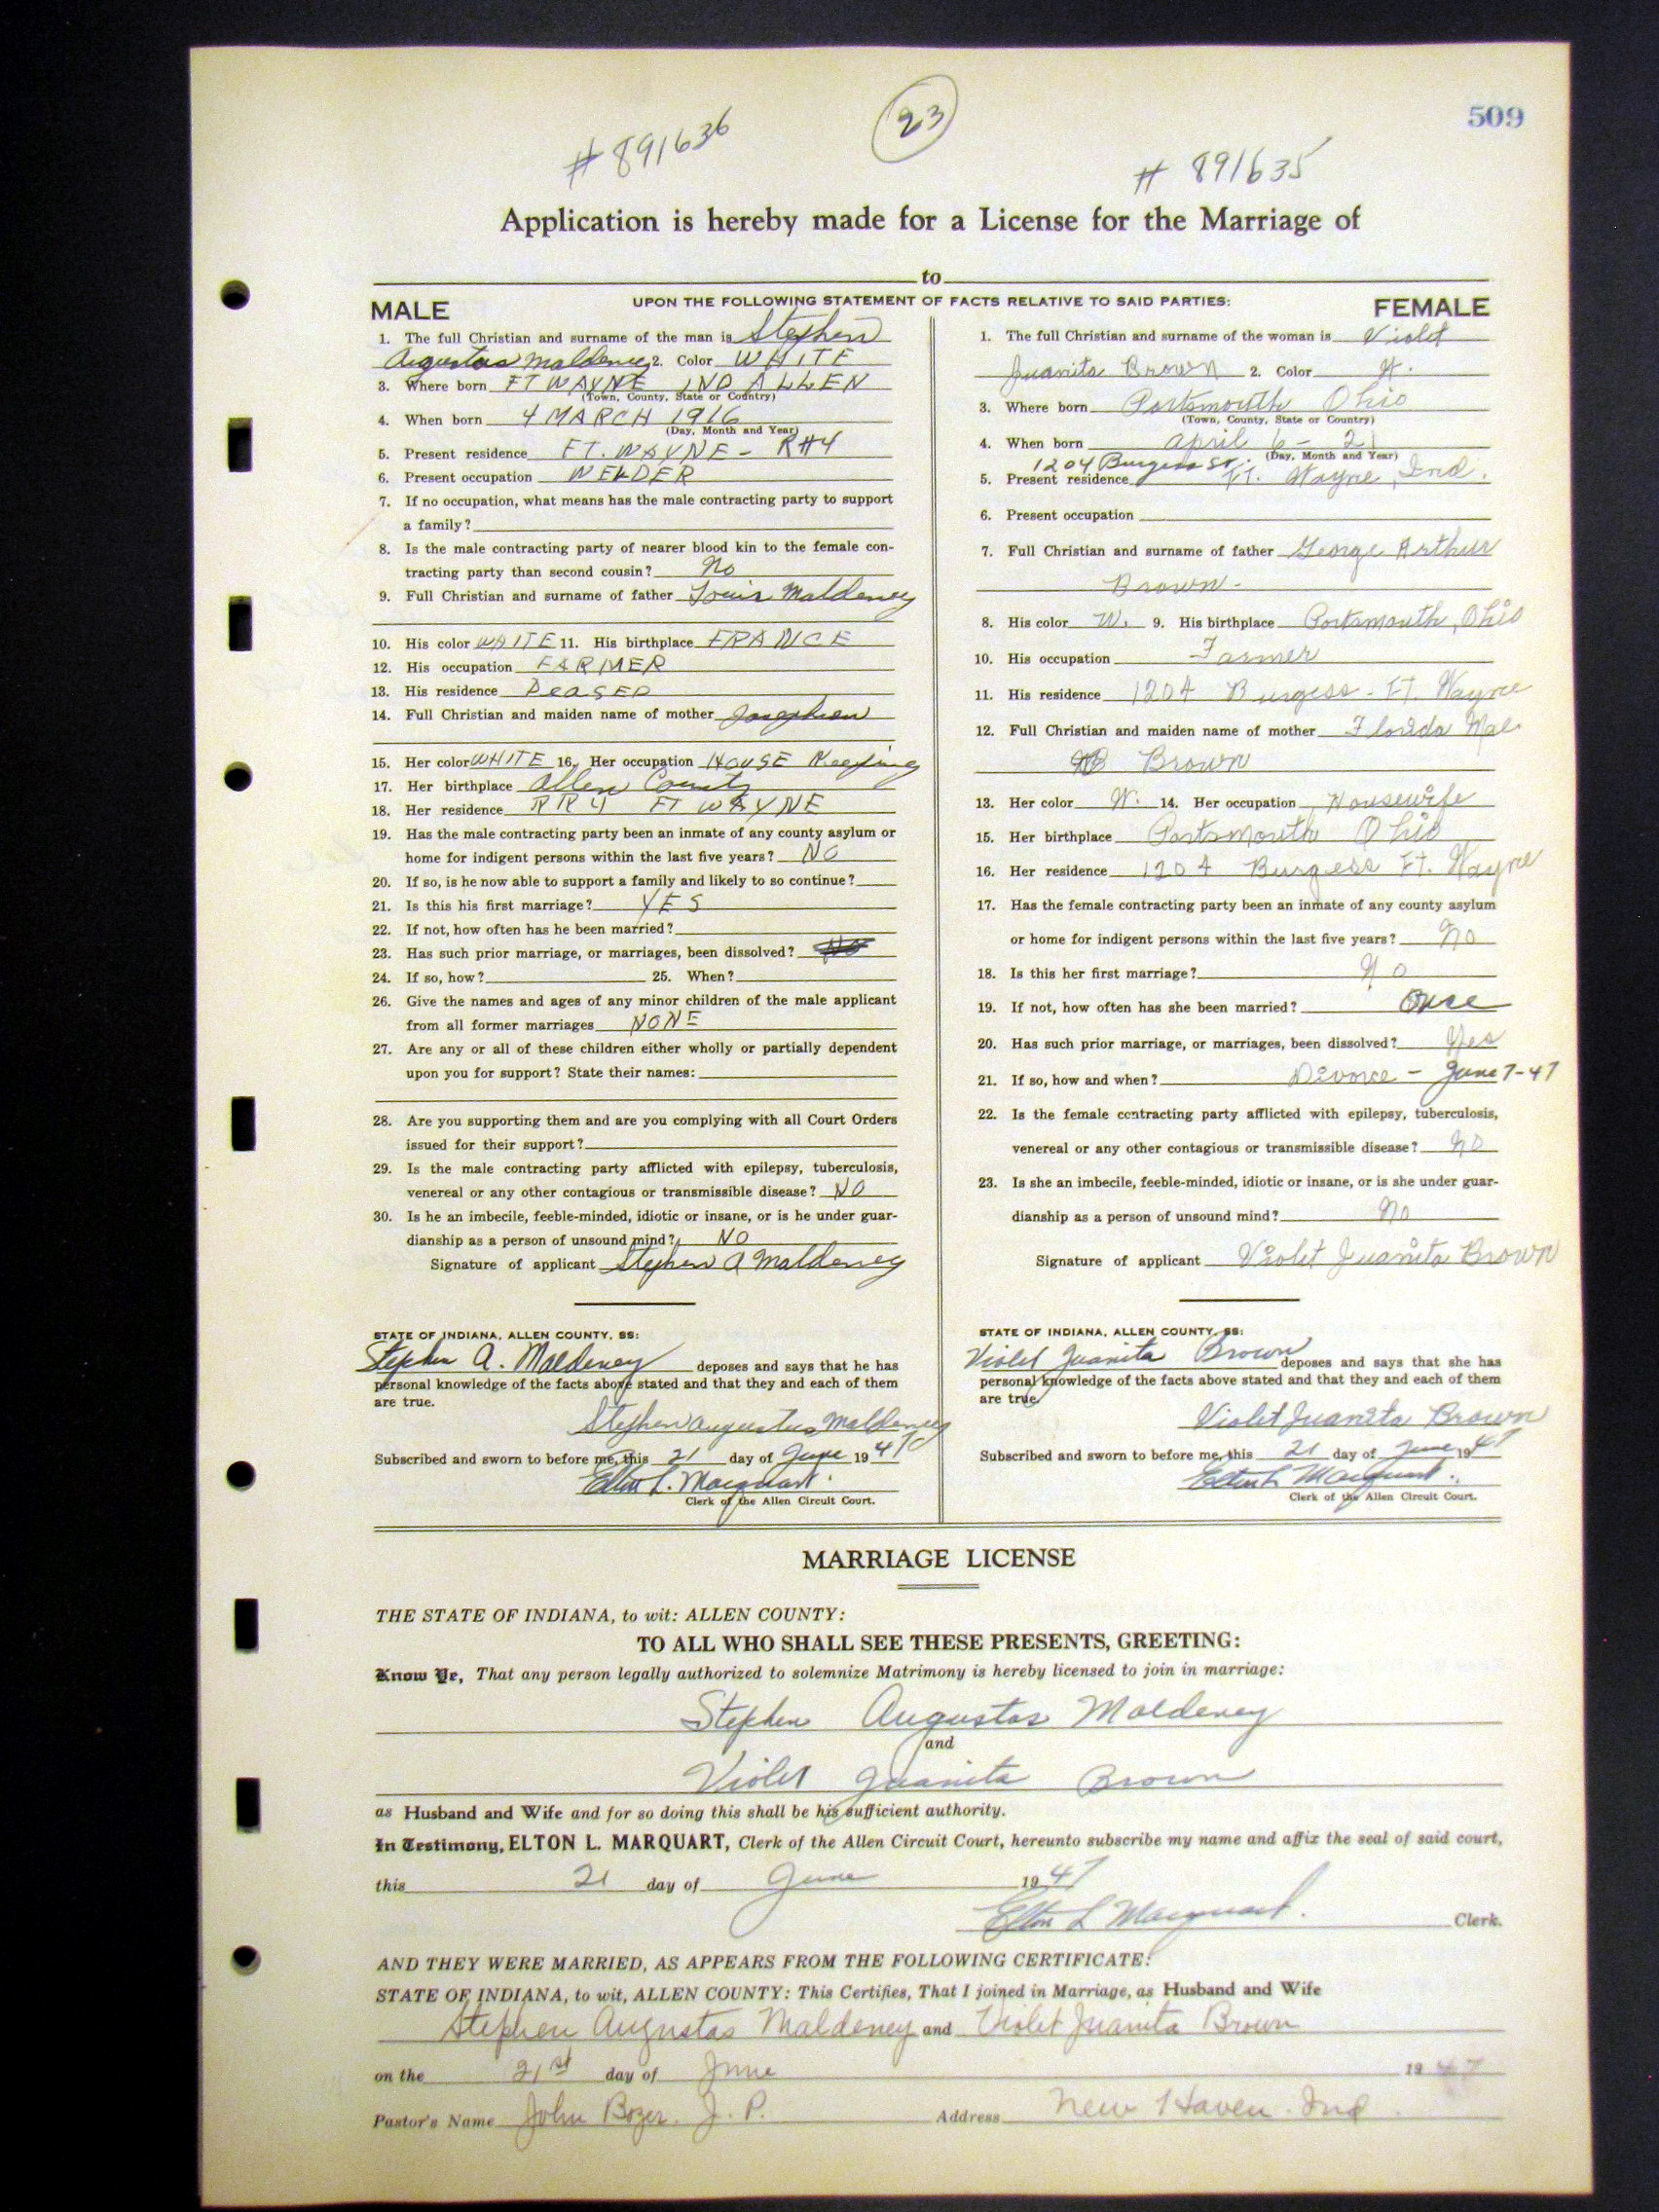 509
23
# 891636
# 891635
Application is hereby made for a License for the Marriage of
to
UPON THE FOLLOWING STATEMENT OF FACTS RELATIVE TO SAID PARTIES:
MALE
1. The full Christian and surname of the man is Stephen
Augustas Maldeney 2. Color WHITE
3. Where born FT WAYNE IND ALLEN
(Town, County, State or Country)
4. When born 4 MARCH 1916
(Day, Month and Year)
5. Present residence FT. WAYNE - R#4
6. Present occupation WELDER
7. If no occupation, what means has the male contracting party to support
a family?
8. Is the male contracting party of nearer blood kin to the female con-
tracting party than second cousin? No
9. Full Christian and surname of father Louis Maldeney
10. His color WHITE 11. His birthplace FRANCE
12. His occupation FARMER
13. His residence DEASED
14. Full Christian and maiden name of mother Josephien
15. Her color WHITE 16. Her occupation HOUSE Keeping
17. Her birthplace Allen County
18. Her residence RR4 FT WAYNE
19. Has the male contracting party been an inmate of any county asylum or
home for indigent persons within the last five years? NO
20. If so, is he now able to support a family and likely to so continue?
21. Is this his first marriage? YES
22. If not, how often has he been married?
23. Has such prior marriage, or marriages, been dissolved? No
24. If so, how? 25. When?
26. Give the names and ages of any minor children of the male applicant
from all former marriages NONE
27. Are any or all of these children either wholly or partially dependent
upon you for support? State their names:
28. Are you supporting them and are you complying with all Court Orders
issued for their support?
29. Is the male contracting party afflicted with epilepsy, tuberculosis,
venereal or any other contagious or transmissible disease? NO
30. Is he an imbecile, feeble-minded, idiotic or insane, or is he under guar-
dianship as a person of unsound mind? NO
Signature of applicant Stephen A Maldeney
STATE OF INDIANA, ALLEN COUNTY, SS:
Stephen A. Maldeney deposes and says that he has
personal knowledge of the facts above stated and that they and each of them
are true.
Stephen Augustus Maldeney
Subscribed and sworn to before me, this 21 day of June 1947
Elton L. Marquart.
Clerk of the Allen Circuit Court.
FEMALE
1. The full Christian and surname of the woman is Violet
Juanita Brown 2. Color W.
3. Where born Portsmouth Ohio
(Town, County, State or Country)
4. When born April 6 - 21
(Day, Month and Year)
1204 Burgess St.
5. Present residence Ft. Wayne, Ind.
6. Present occupation
7. Full Christian and surname of father George Arthur
Brown-
8. His color W. 9. His birthplace Portsmouth, Ohio
10. His occupation Farmer
11. His residence 1204 Burgess - Ft. Wayne
12. Full Christian and maiden name of mother Florida Mae
Brown
13. Her color W. 14. Her occupation Housewife
15. Her birthplace Portsmouth Ohio
16. Her residence 1204 Burgess Ft. Wayne
17. Has the female contracting party been an inmate of any county asylum
or home for indigent persons within the last five years? No
18. Is this her first marriage? No
19. If not, how often has she been married? Once
20. Has such prior marriage, or marriages, been dissolved? Yes
21. If so, how and when? Divorce - June 7-47
22. Is the female contracting party afflicted with epilepsy, tuberculosis,
venereal or any other contagious or transmissible disease? No
23. Is she an imbecile, feeble-minded, idiotic or insane, or is she under guar-
dianship as a person of unsound mind? No
Signature of applicant Violet Juanita Brown
STATE OF INDIANA, ALLEN COUNTY, SS:
Violet Juanita Brown deposes and says that she has
personal knowledge of the facts above stated and that they and each of them
are true.
Violet Juanita Brown
Subscribed and sworn to before me, this 21 day of June 1947
Elton L. Marquart.
Clerk of the Allen Circuit Court.
MARRIAGE LICENSE
THE STATE OF INDIANA, to wit: ALLEN COUNTY:
TO ALL WHO SHALL SEE THESE PRESENTS, GREETING:
Know Ye, That any person legally authorized to solemnize Matrimony is hereby licensed to join in marriage:
Stephen Augustas Maldeney
and
Violet Juanita Brown
as Husband and Wife and for so doing this shall be his sufficient authority.
In Testimony, ELTON L. MARQUART, Clerk of the Allen Circuit Court, hereunto subscribe my name and affix the seal of said court,
this 21 day of June 1947
Elton L Marquart. Clerk.
AND THEY WERE MARRIED, AS APPEARS FROM THE FOLLOWING CERTIFICATE:
STATE OF INDIANA, to wit, ALLEN COUNTY: This Certifies, That I joined in Marriage, as Husband and Wife
Stephen Augustas Maldeney and Violet Juanita Brown
on the 21st day of June 1947
Pastor's Name John Bozer. J. P. Address New Haven. Ind